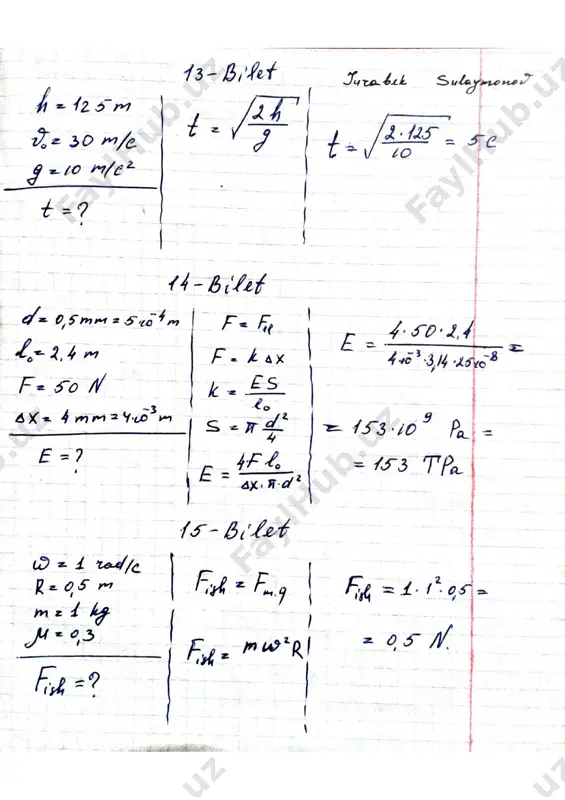 13-Bilet
Jurabek Sulaymonov
h = 125 m
ϑ₀ = 30 m/c
g = 10 m/c²
t = ?
t = √(2h/g)
t = √(2·125/10) = 5c
14-Bilet
d = 0,5mm = 5·10⁻⁴ m
l₀ = 2,4 m
F = 50 N
Δx = 4 mm = 4·10⁻³ m
E = ?
F = Fₑₗ
F = k Δx
k = ES/l₀
S = π d²/4
E = 4F l₀/Δx·π·d²
E = 4·50·2,4/4·10⁻³·3,14·25·10⁻⁸ =
= 153·10⁹ Pa =
= 153 TPa
15-Bilet
ω = 1 rad/c
R = 0,5 m
m = 1 kg
μ = 0,3
Fish = ?
Fish = Fm.q
Fish = mω²R
Fish = 1·1²·0,5 =
= 0,5 N.
FaylHub.uz
FaylHub.uz
FaylHub.uz
FaylHub.uz
uz
uz